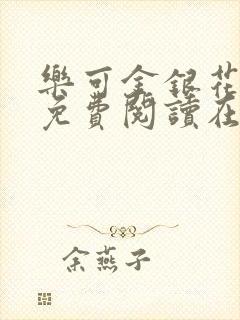 樂可金銀花
免費閱讀在
余燕子